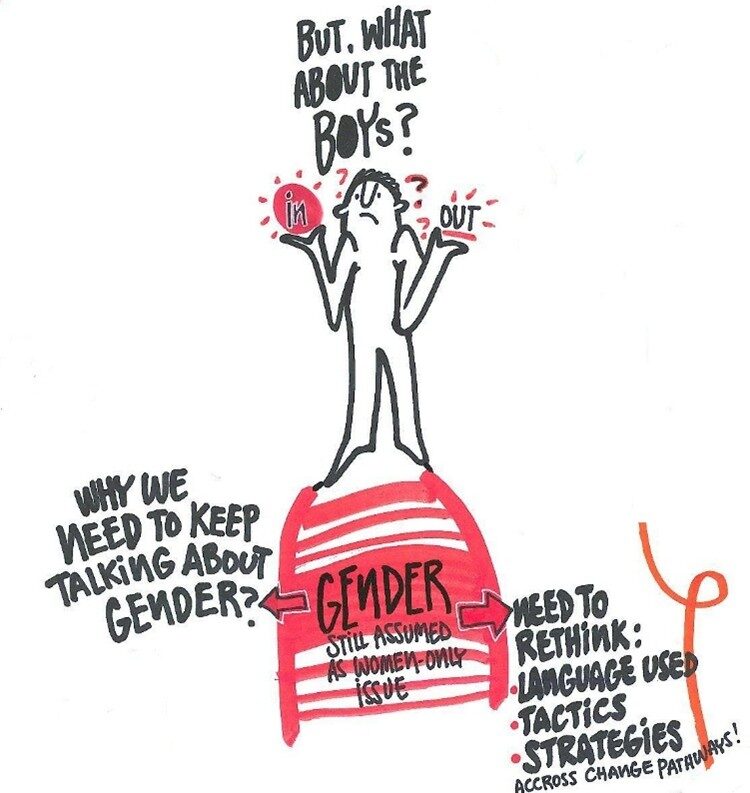 BUT, WHAT
ABOUT THE
BOYS?
in
OUT
WHY WE
NEED TO KEEP
TALKING ABOUT
GENDER?
GENDER
STILL ASSUMED
AS WOMEN-ONLY
ISSUE
NEED TO
RETHINK:
• LANGUAGE USED
• TACTICS
• STRATEGIES
ACCROSS CHANGE PATHWAYS!